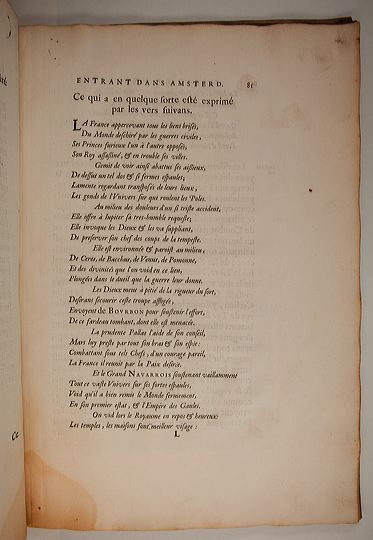 ENTRANT DANS AMSTERD. 81
Ce qui a en quelque sorte esté exprimé
par les vers suivans.
LA France appercevant tous les liens brisés,
Du Monde deschiré par les guerres civiles,
Ses Princes furieux l'un à l'autre opposés,
Son Roy assassiné, & en trouble ses villes.
Gemit de voir ainsi abattus ses aissieux,
De dessus un tel dos & si fermes espaules;
Lamente regardant transposés de leurs lieux,
Les gonds de l'Univers sur qui roulent les Poles.
Au milieu des douleurs d'un si triste accident,
Elle offre à Iupiter sa tres-humble requeste;
Elle invoque les Dieux & les va suppliant,
De preserver son chef des coups de la tempeste.
Elle est environnée & paroist au milieu,
De Ceres, de Bacchus, de Venus, de Pomonne,
Et des divinités que l'on void en ce lieu,
Plongées dans le dueil que la guerre leur donne.
Les Dieux meus à pitié de la rigueur du sort,
Desirans secourir ceste troupe affligée,
Envoyent de BOURBON pour soustenir l'effort,
De ce fardeau tombant, dont elle est menacée.
La prudente Pallas l'aide de son conseil,
Mars luy preste par tout son bras & son espée:
Combattant sous tels Chefs, d'un courage pareil,
La France il reunit par la Paix desirée.
Et le Grand NAVARROIS soustenant vaillamment
Tout ce vaste Vnivers sur ses fortes espaules,
Void qu'il a bien remis le Monde fermement,
En son premier estat, & l'Empire des Gaules.
On vid lors le Royaume en repos & heureux
Les temples, les maisons sont meilleur visage:
L